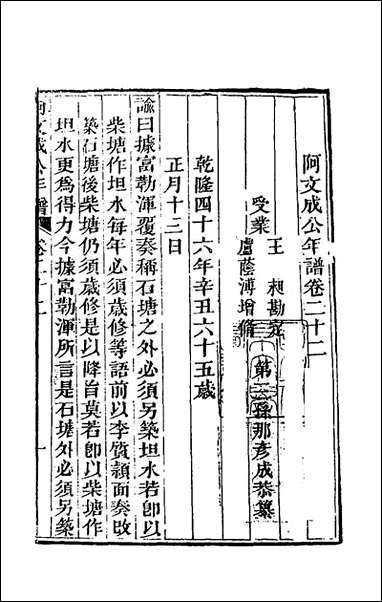 阿文成公年譜卷二十二
第三孫那彥成恭纂
受業
王昶勘定
盧蔭溥增修
乾隆四十六年辛丑六十五歲
正月十三日
諭曰據富勒渾覆奏稱石塘之外必須另築坦水若卽以
柴塘作坦水每年必須歲修等語前以李質穎面奏改
築石塘後柴塘仍須歲修是以降旨莫若卽以柴塘作
坦水更爲得力今據富勒渾所言是石塘外必須另築
阿文成公年譜
卷二十二
一